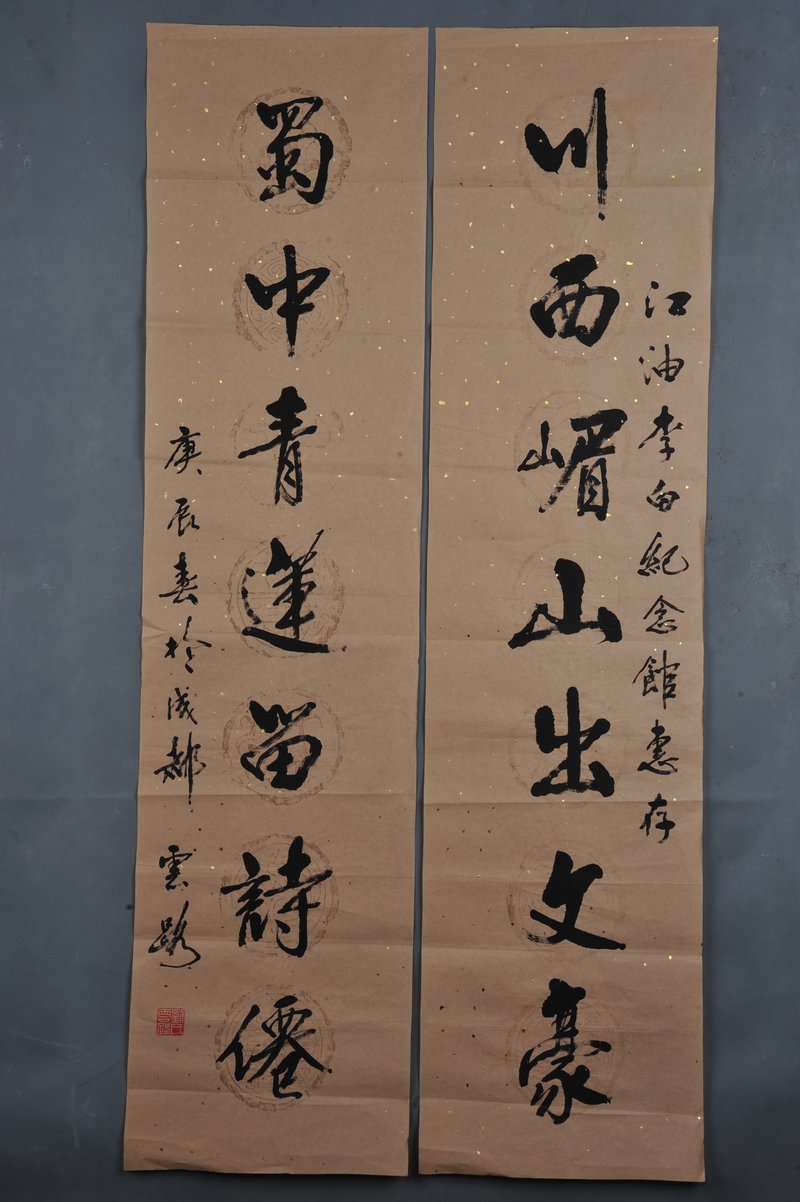 江油李白紀念館惠存
川西嵋山出文豪
蜀中青蓮留詩僊
庚辰春於成都 雲路